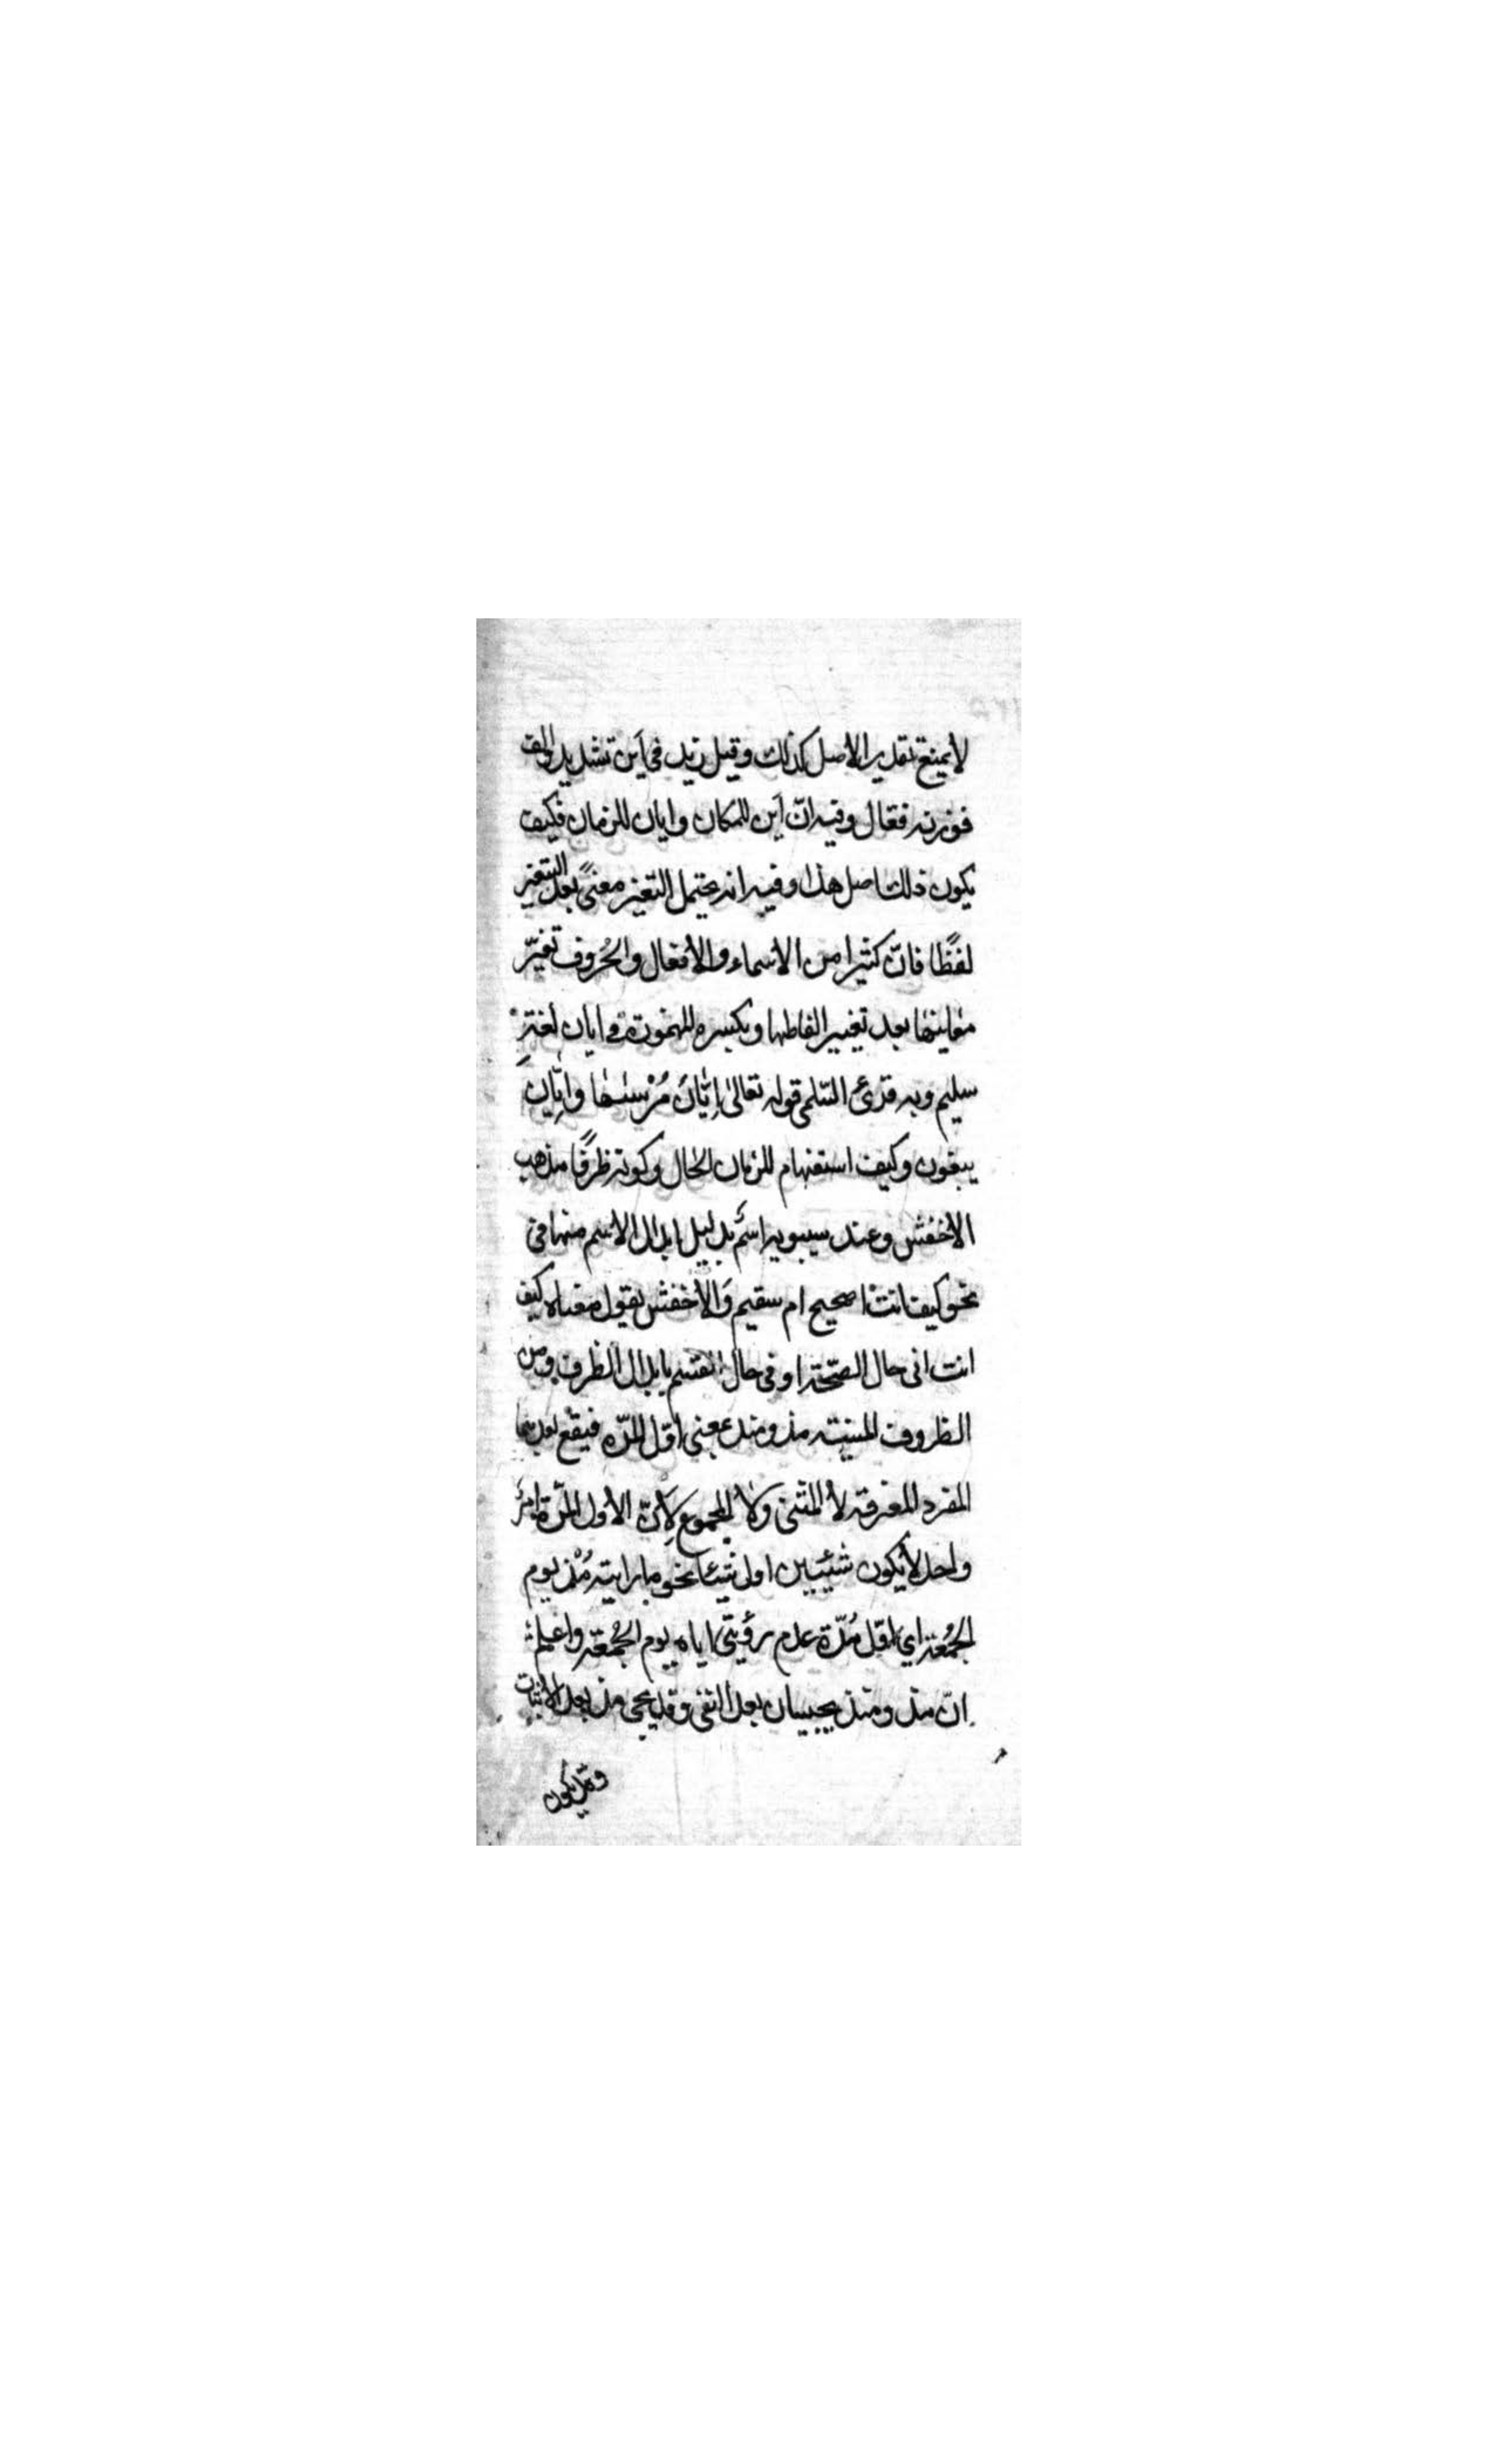 لا يمنع تقدير الاصل كذلك وقيل زيد في اين تشديد والف
فوزنه فعّال وفيه انّ اين للمكان وايان للزمان فكيف
يكون ذلك اصل هذا وفيه انه يحتمل التغير معنىً بعد التغير
لفظًا فانّ كثيرا من الاسماء والافعال والحُروف تغيّر
معانيها بعد تغيير الفاظها وبكسره للهمزة في ايان لغة
سليم وبه قرئ السّلمي قوله تعالىٰ إيّانَ مُرْسٰىها وايّان
يبعثون وكيف استفهام للزمان الحال وكونه ظرفًا مذهب
الاخفش وعند سيبويه اسم بدليل ابدال الاسم منها في
نحو كيف انت اصحيح ام سقيم والاخفش يقول معناه كيف
انت افى حال الصّحّة او فى حال السقم بابدال الظرف ومن
الظروف المبنية مذ ومنذ بمعنى اوّل المدّه فيقع بعدهما
المفرد المعرفة لا المثنى ولا المجموع لانّ الاول المدّة امرٌ
واحد لا يكون شيئين او اشياء نحو ما رايته مُنذ يوم
الجُمُعة اي اوّل مُدّة عدم رؤيتى اياه يوم الجُمُعة واعلم
انّ مذ ومنذ يجيبان بعد النفى وقد يجى مذ بعد الاثبات
وقد يكون